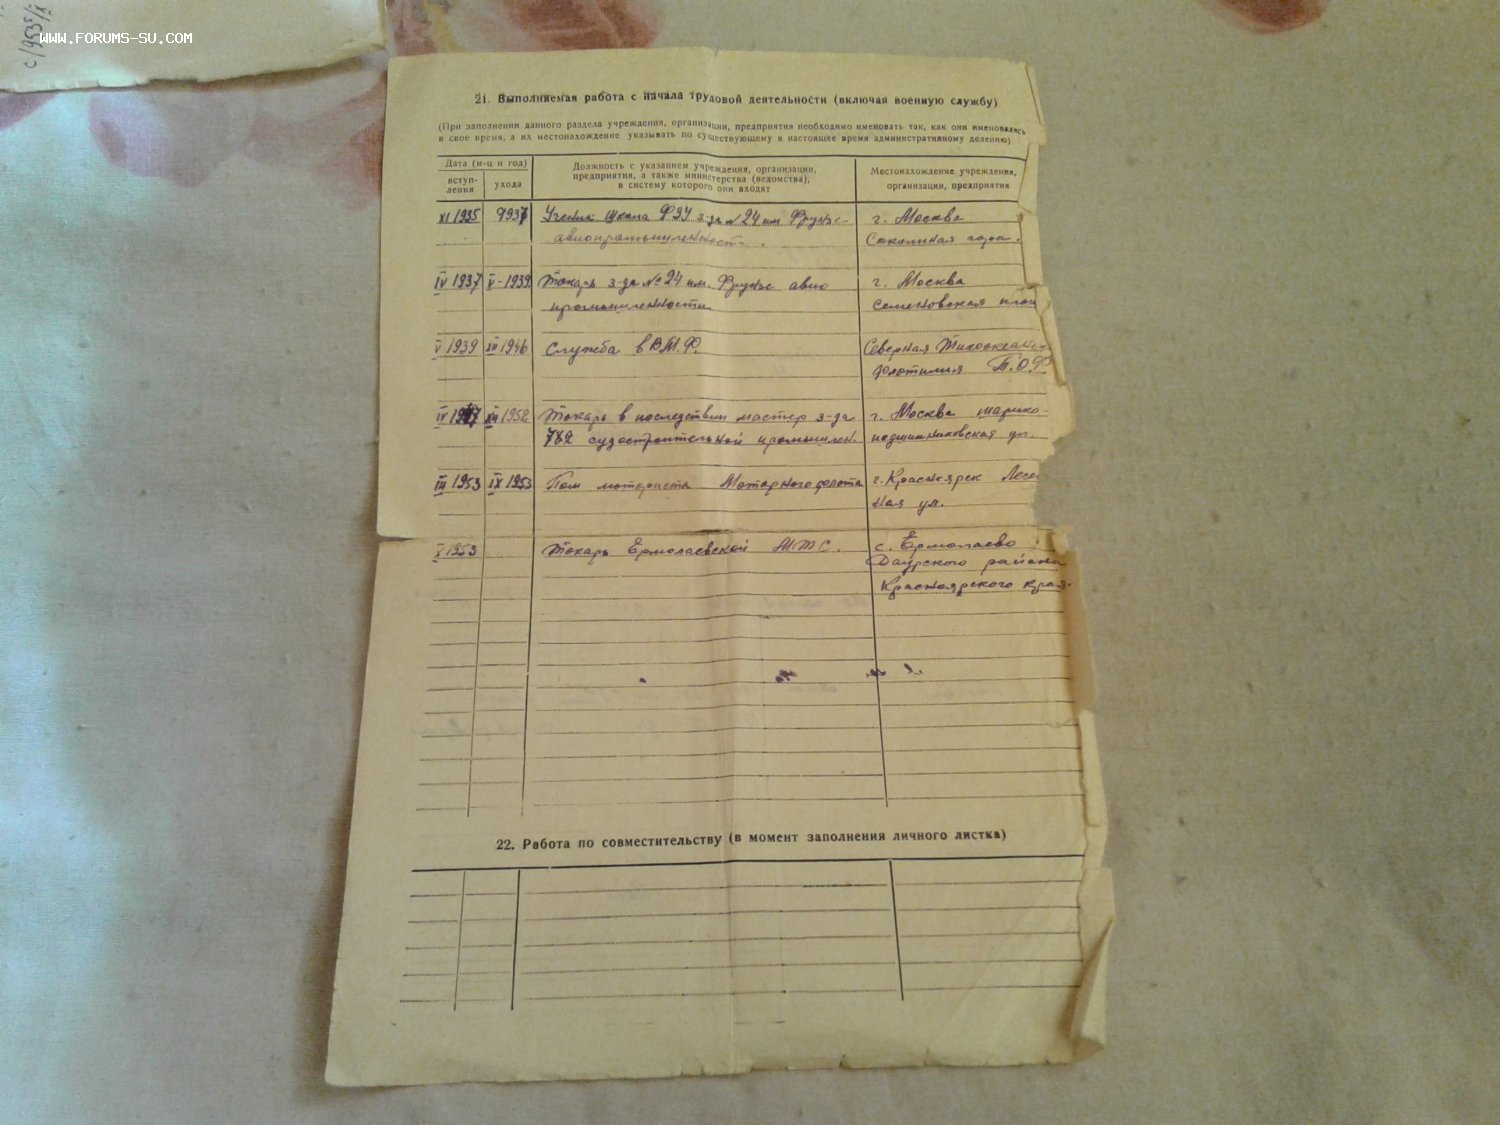 с/9535/х
WWW.FORUMS-SU.COM
21. Выполняемая работа с начала трудовой деятельности (включая военную службу)
(При заполнении данного раздела учреждения, организации, предприятия необходимо именовать так, как они именовались
в свое время, а их местонахождение указывать по существующему в настоящее время административному делению)
Дата (м-ц и год)
вступ-
ления
ухода
Должность с указанием учреждения, организации,
предприятия, а также министерства (ведомства),
в систему которого они входят
Местонахождение учреждения,
организации, предприятия
XI 1935 1937 Ученик школа ФЗУ з-да №24 им Фрунзе- г. Москва
авиопромышленност. Соколиная гора.
IV 1937 V-1939 Токарь з-да №24 им. Фрунзе авио г. Москва
промышленности Семеновская площ
V 1939 XII 1946 Служба в В.М.Ф. Северная Тихоокеанск
флотилия Т.О.Ф
IV 1947 XII 1952 Токарь в последствии мастер з-да г. Москва шарико-
782 судостроительной промышлен. подшипниковская ул.
III 1953 IX 1953 Пом моториста Моторного флота г. Красноярск Лесо
ная ул.
X 1953 Токарь Ермолаевской МТС. с. Ермолаево
Даурского района
Красноярского края.
22. Работа по совместительству (в момент заполнения личного листка)